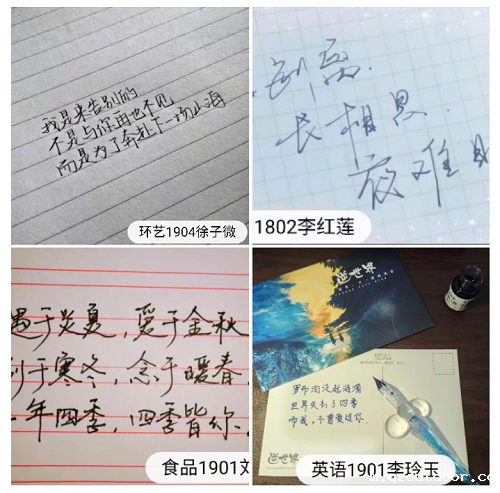 我是来告别的
不是与你再也不见
而是为了奔赴下一场山海
环艺1904徐子微
别离.
长相思.
夜难
1802李红莲
遇于炎夏，爱于金秋
于寒冬，念于暖春，
年四季，四季皆你
食品1901刘
逆世界
世界失去了四季
而我,不曾爱过你.
逆世界
英语1901李玲玉